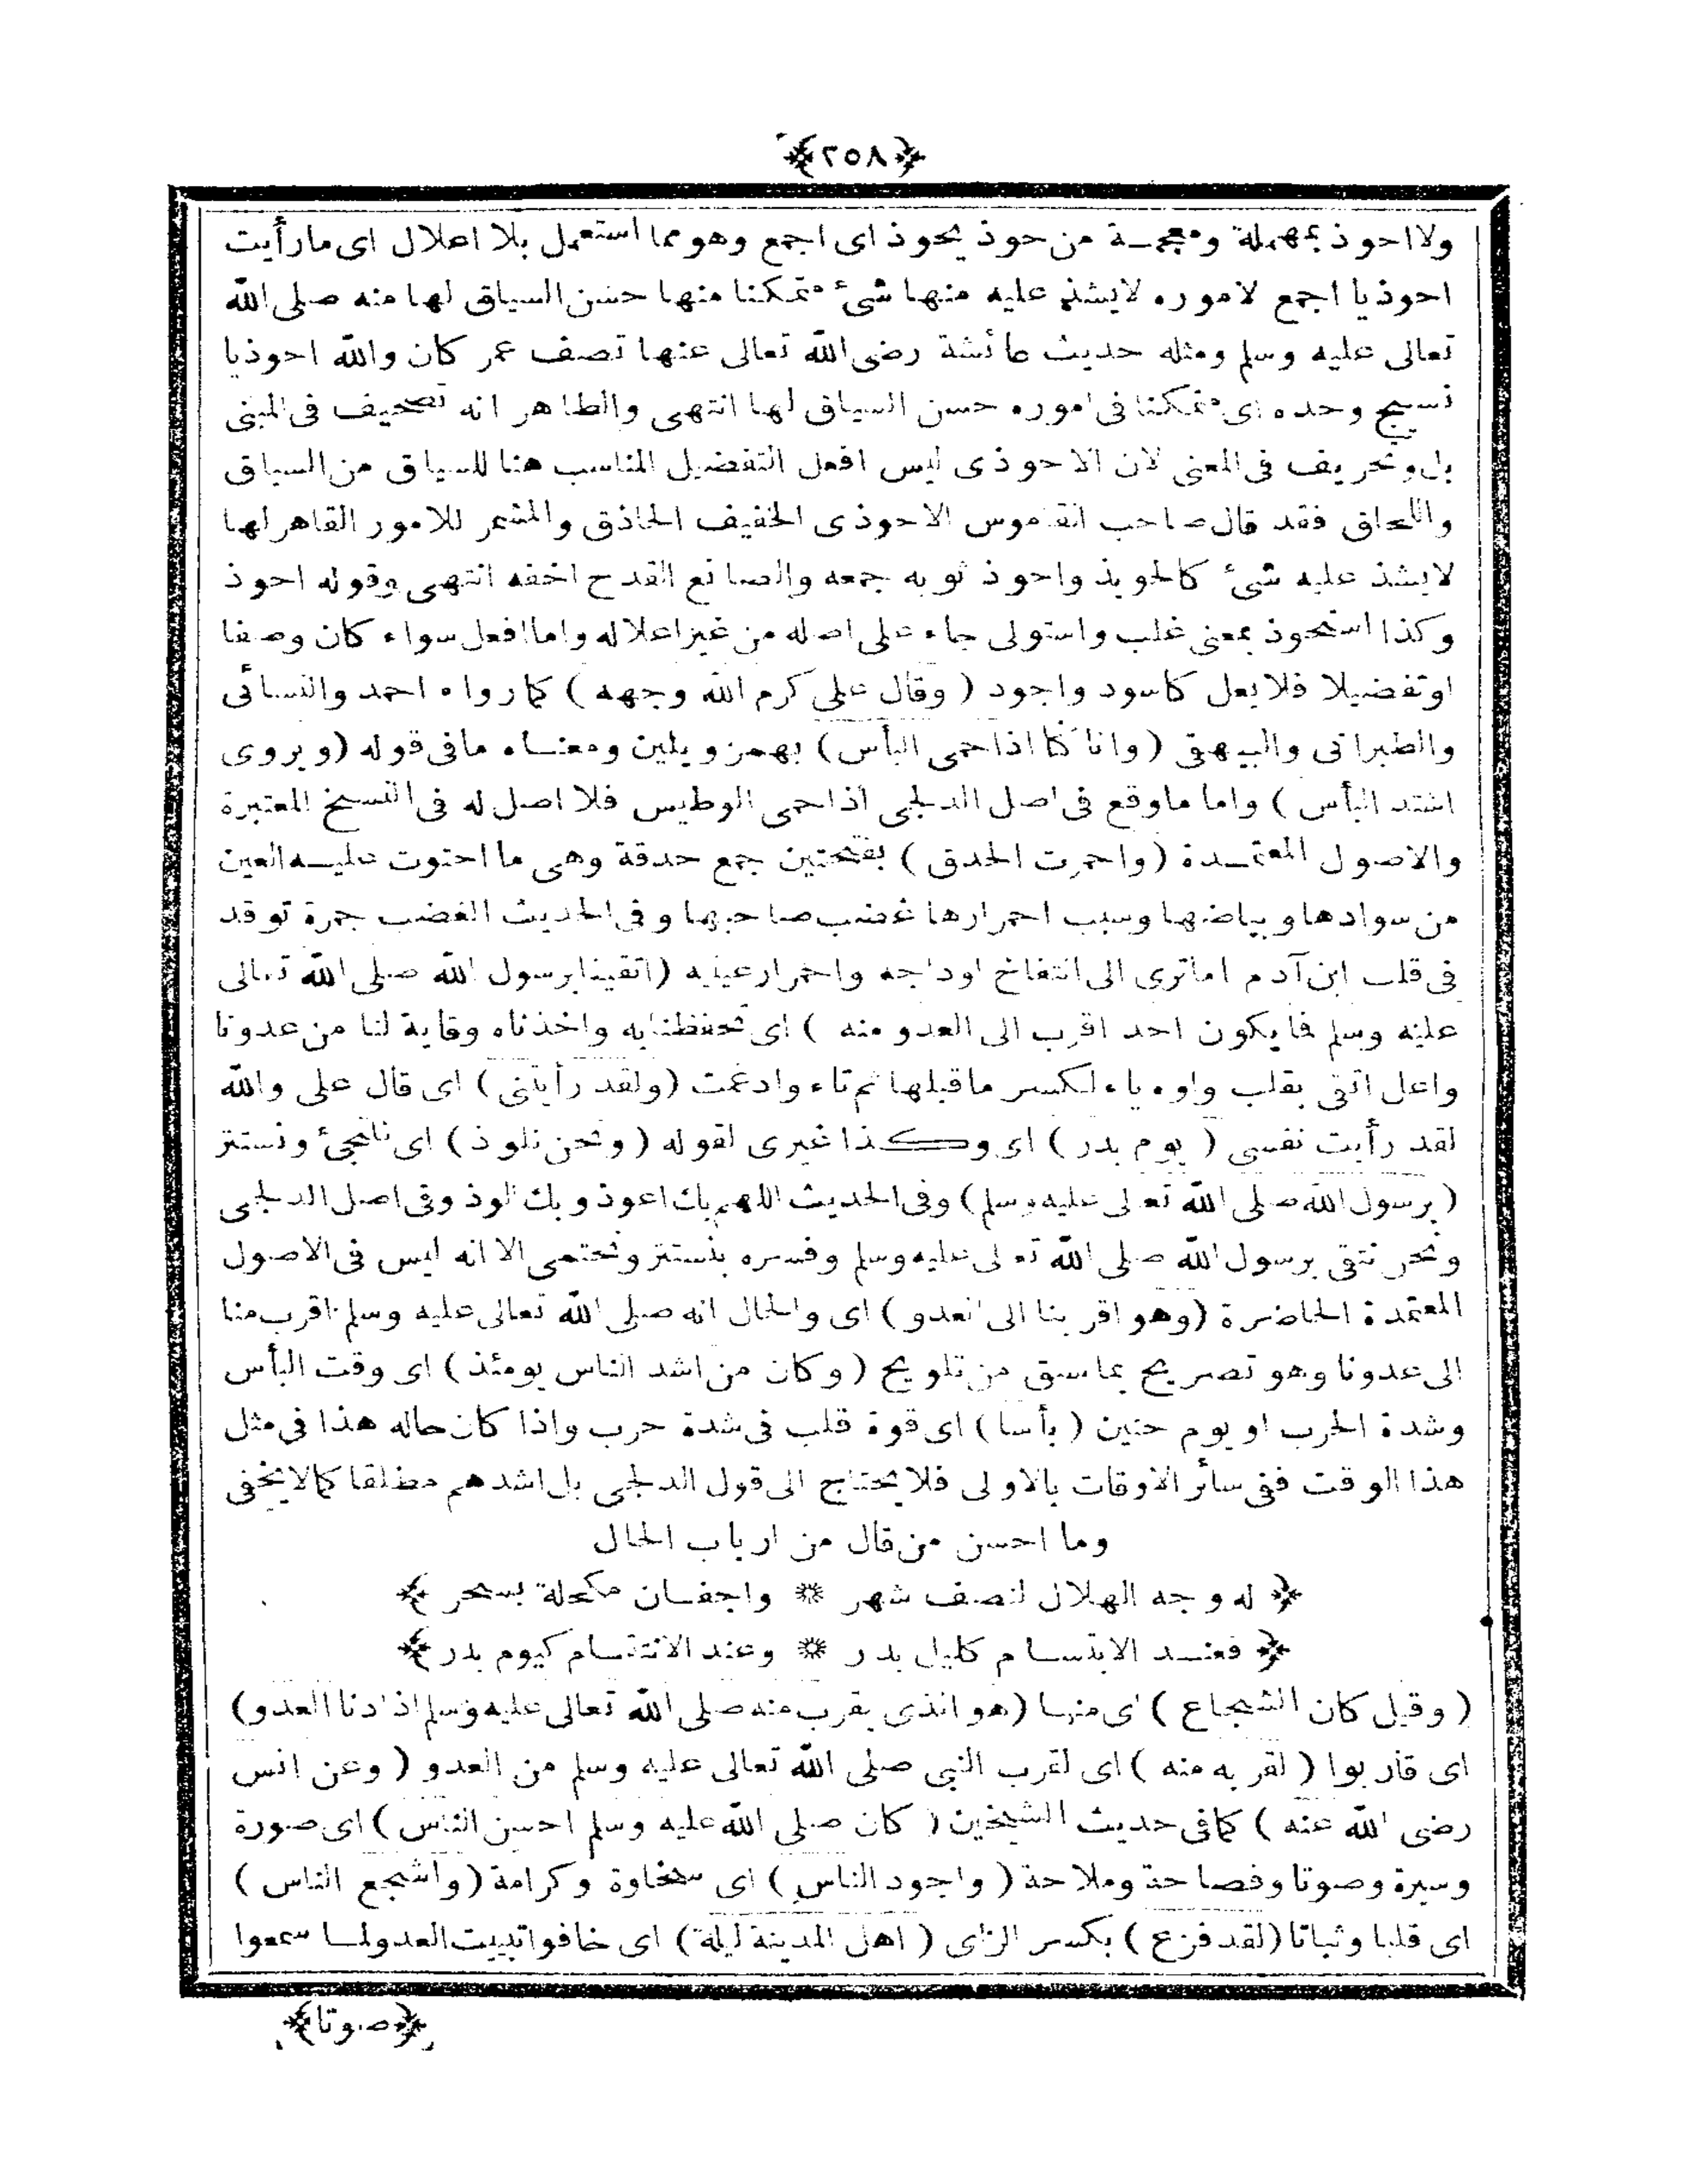 ﴿٢٥٨﴾
ولا احوذ بمهملة ومعجمـة من حوذ يحوذ اى اجمع وهو مما استعمل بلا اعلال اى ما رأيت
احوذيا اجمع لاموره لايشذ عليه منها شئ متمكنا منها حسن السياق لها منه صلى الله
تعالى عليه وسلم ومثله حديث عائشة رضى الله تعالى عنها تصف عمر كان والله احوذيا
نسيج وحده اى متمكنا فى اموره حسن السياق لها انتهى والظاهر انه تصحيف فى المبنى
بل وتحريف فى المعنى لان الاحوذى ليس افعل التفضيل المناسب هنا للسياق من السباق
واللحاق فقد قال صاحب القاموس الاحوذى الخفيف الحاذق والمشمر للامور القاهر لها
لايشذ عليه شئ كالحويذ واحوذ ثوبه جمعه والصانع القدح اخفه انتهى وقوله احوذ
وكذا استحوذ بمعنى غلب واستولى جاء على اصله من غير اعلاله واما افعل سواء كان وصفا
اوتفضيلا فلايعل كاسود واجود ( وقال على كرم الله وجهه ) كما رواه احمد والنسائى
والطبرانى والبيهقى (وانا كنا اذا حمى البأس) بهمز ويلين ومعنـاه مافى قوله (ويروى
اشتد البأس ) واما ماوقع فى اصل الدلجى اذا حمى الوطيس فلا اصل له فى النسخ المعتبرة
والاصول المعتمـدة (واحمرت الحدق ) بفتحتين جمع حدقة وهى ما احتوت عليـه العين
من سوادها وبياضها وسبب احمرارها غضب صاحبها وفى الحديث الغضب جمرة توقد
فى قلب ابن آدم اماترى الى انتفاخ اوداجه واحمرار عينيه (اتقينا برسول الله صلى الله تعالى
عليه وسلم فما يكون احد اقرب الى العدو منه ) اى تحفظنا به واخذناه وقاية لنا من عدونا
واعل اتقى بقلب واوه ياء لكسر ماقبلها ثم تاء وادغمت (ولقد رأيتنى ) اى قال على والله
لقد رأيت نفسى ( يوم بدر ) اى وكـذا غيرى لقوله ( ونحن نلوذ ) اى نلتجئ ونستتر
(برسول الله صلى الله تعالى عليه وسلم) وفى الحديث اللهم بك اعوذ وبك الوذ وفى اصل الدلجى
ونحن نتقى برسول الله صلى الله تعالى عليه وسلم وفسره بنستتر ونحتمى الا انه ليس فى الاصول
المعتمدة الحاضرة (وهو اقربنا الى العدو) اى والحال انه صلى الله تعالى عليه وسلم اقرب منا
الى عدونا وهو تصريح بما سبق من تلويح (وكان من اشد الناس يومئذ ) اى وقت البأس
وشدة الحرب او يوم حنين (بأسا ) اى قوة قلب فى شدة حرب واذا كان حاله هذا فى مثل
هذا الوقت ففى سائر الاوقات بالاولى فلا يحتاج الى قول الدلجى بل اشدهم مطلقا كما لايخفى
وما احسن من قال من ارباب الحال
﴿ له وجه الهلال لنصف شهر ۞ واجفـان مكحلة بسحر ﴾
﴿ فعنـد الابتسـام كليل بدر ۞ وعند الانتقـام كيوم بدر ﴾
( وقيل كان الشجاع ) اى منهـا (هو الذى يقرب منه صلى الله تعالى عليه وسلم اذا دنا العدو)
اى قاربوا ( لقربه منه ) اى لقرب النبى صلى الله تعالى عليه وسلم من العدو ( وعن انس
رضى الله عنه ) كما فى حديث الشيخين ( كان صلى الله عليه وسلم احسن الناس ) اى صورة
وسيرة وصوتا وفصاحة وملاحة ( واجود الناس ) اى سخاوة وكرامة ( واشجع الناس )
اى قلبا وثباتا ( لقد فزع ) بكسر الزاى ( اهل المدينة ليلة ) اى خافوا تبييت العدو لمـا سمعوا
﴿صوتا﴾